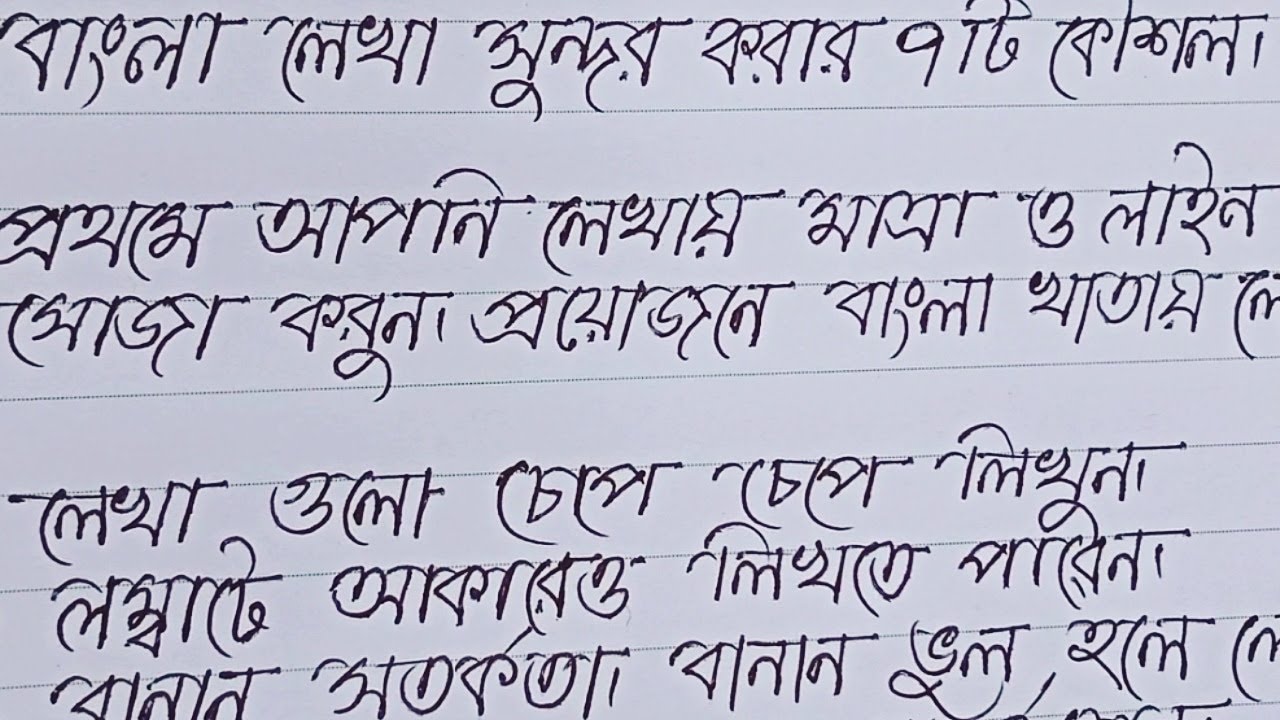 বাংলা লেখা সুন্দর করার ৭টি কৌশল।
প্রথমে আপনি লেখায় মাত্রা ও লাইন
সোজা করুন। প্রয়োজনে বাংলা খাতায় লে
লেখা গুলো চেপে চেপে লিখুন।
লম্বাটে আকারেও লিখতে পারেন।
বানান সতর্কতা। বানান ভুল হলে লে